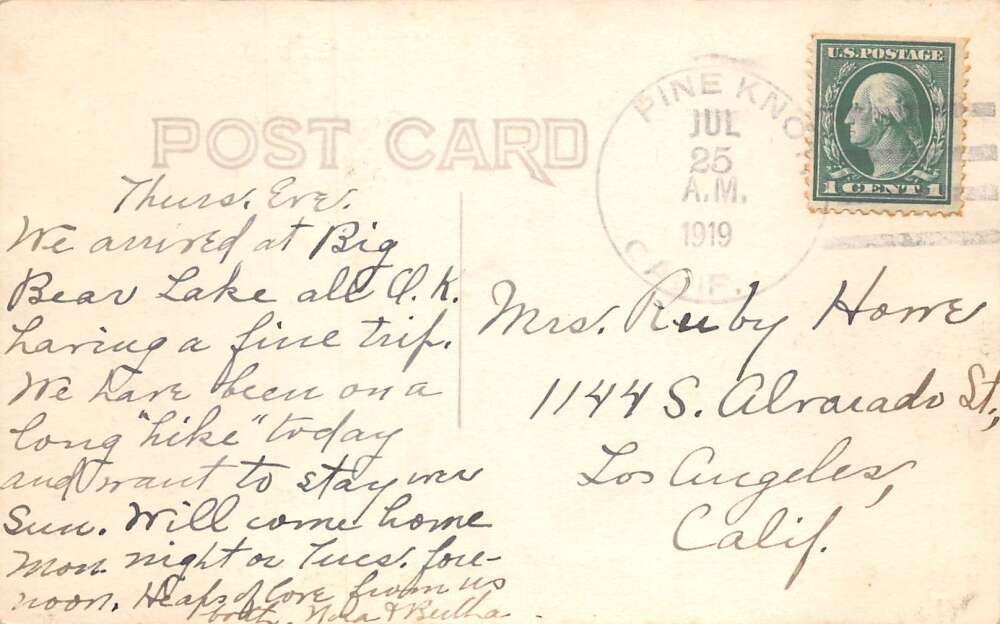 POST CARD
PINE KNO
JUL
25
A.M.
1919
CALIF.
U.S. POSTAGE
1 CENT 1
Thurs. Eve.
We arrived at Big
Bear Lake all O.K.
having a fine trip.
We have been on a
long "hike" today
and want to stay over
Sun. Will come home
Mon. night or Tues. fore-
noon. Heaps of love from us
both, & Bertha
Mrs. Ruby Howe
1144 S. Alvarado St.,
Los Angeles,
Calif.